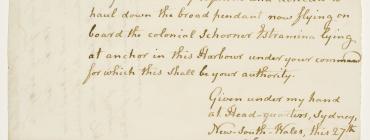 haul down the broad pendant now flying on
board the colonial schooner Estramina lying
at anchor in this Harbour under your command
for which this shall be your authority.
Given under my hand
at Head-quarters, Sydney,
New-South-Wales, this 27th